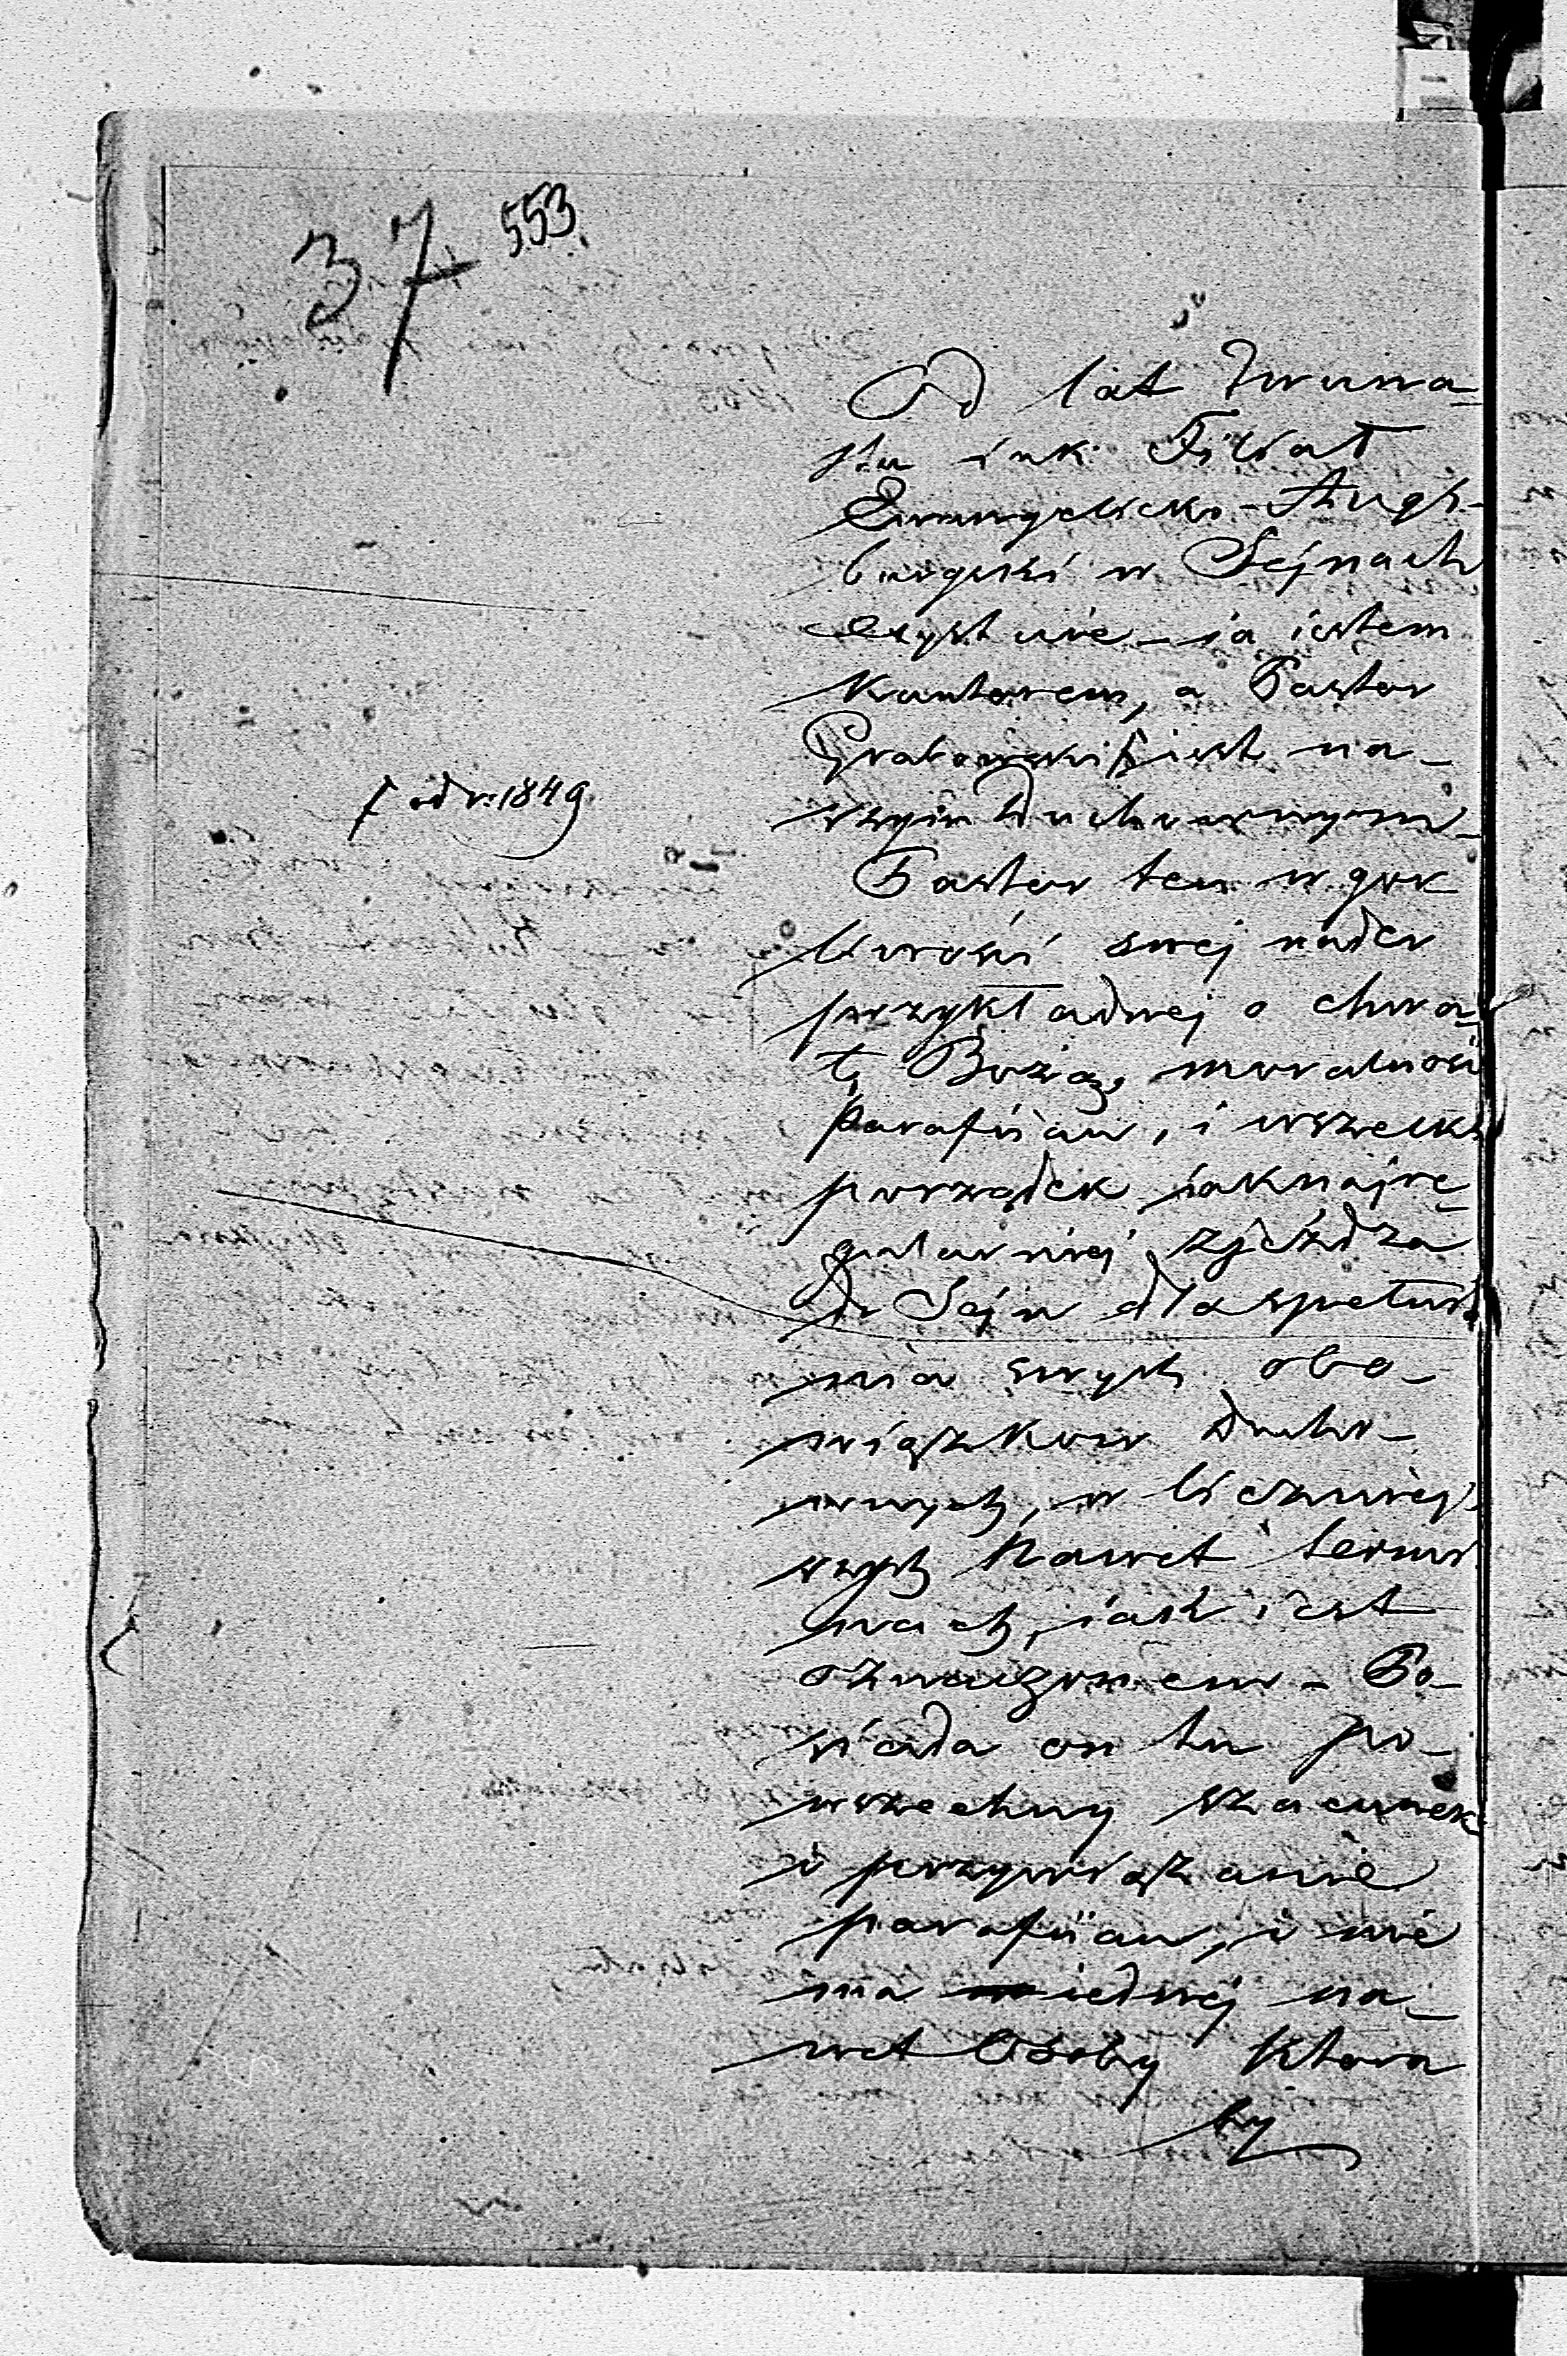 37 553.
Od lat dwuna-
stu i uk. Filiał
Ewangelicko-Augs-
burgski w Sejnach
exystuie – ia iestem
Kantorem, a Pastor
Grabowski ƒ iest na-
szym Duchownym –
ƒ od r. 1849
Pastor ten w gor
liwości swej nader
przykładnej o chwa-
łę Bożą, moralność
parafiian, i wszelki
porządek iaknajre-
gularniej zjeżdża
do Sejn dla spełnia
nia swych obo-
wiązkowDucho-
wnych, w liczniej
szych nawet termi
nach, iak iest
oznaczonem – Po-
siada on tu po-
wszechny szacunek
i przywiązanie
parafiian, i nie
ma iednej na-
wet Osoby ktora
by